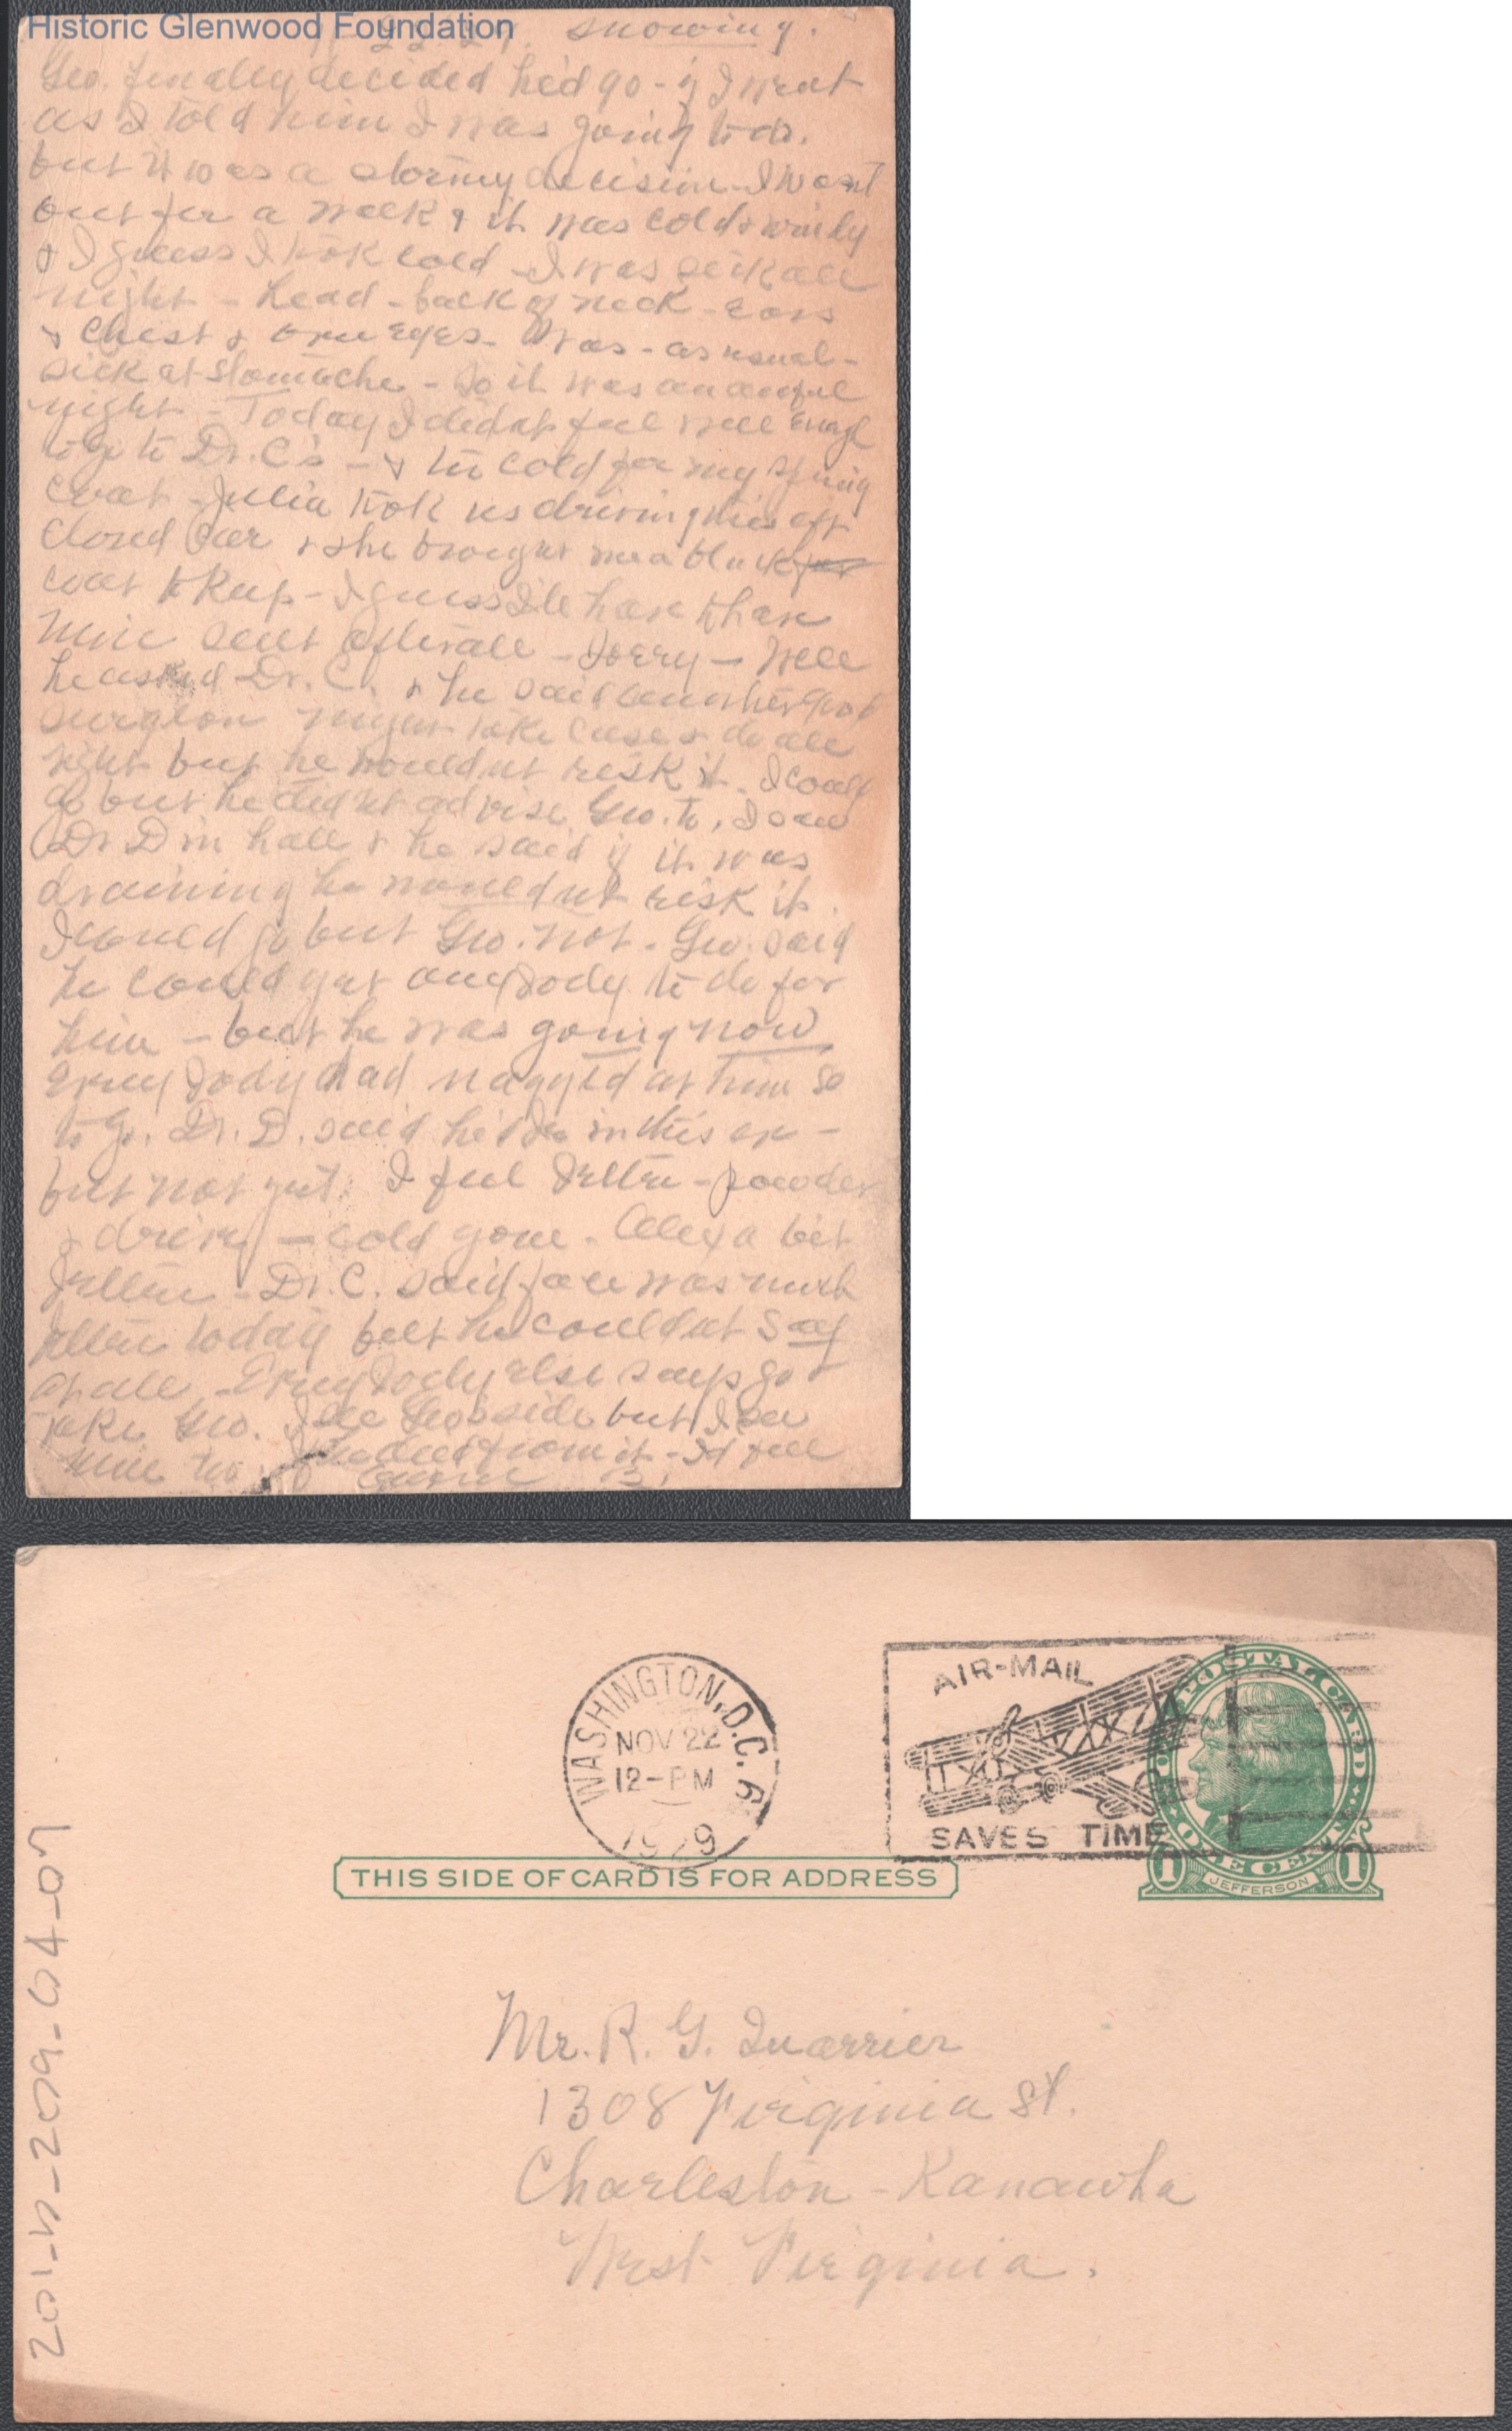 Historic Glenwood Foundation
11-22-29. snowing.
Geo. finally decided he'd go - if I went
as I told him I was going to do.
but it was a stormy decision - I went
out for a walk & it was cold & windy
& I guess I took cold - I was sick all
night - head - back of neck - ears
& chest & eyes - Was - as usual -
sick at stomache - So it was an awful
night - Today I didnt feel well enough
to go to Dr. C's - & too cold for my spring
coat - Julia took us driving this aft
closed car & she brought me a black fur
coat to keep - I guess I'll have to have
mine sent afterall - Sorry - Well
he asked Dr. C. & he said another good
surgeon might take case & do all
right but he wouldnt risk it. I could
go but he didnt advise Geo. to. I saw
Dr D in hall & he said if it was
draining he wouldnt risk it.
I could go but Geo. not. Geo. said
he could get anybody to do for
him - but he was going now
Everybody had nagged at him so
to go. Dr. D. said he in this
but not yet. I feel better - powder
& drive - cold gone. Alex a bit
better - Dr. C. said face was much
better today but he couldnt say
at all - Everybody else says go &
take Geo. I see Geo's side but I see
mine too from it - I'd
B.
WASHINGTON, D.C. 6
NOV 22
12-PM
1929
AIR-MAIL
SAVES TIME
POSTAL CARD
ONE CENT
1 JEFFERSON 1
THIS SIDE OF CARD IS FOR ADDRESS
Mr. R. G. Quarrier
1308 Virginia St.
Charleston - Kanawha
West Virginia.
201-h-209-04-07